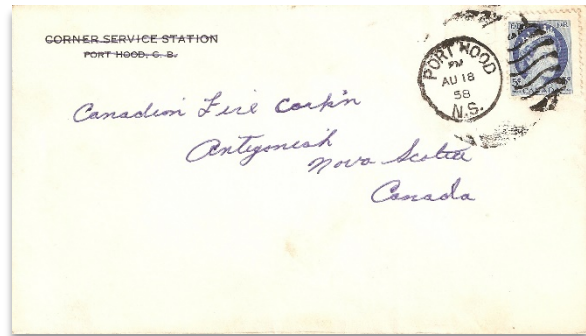 CORNER SERVICE STATION
PORT HOOD, C. B.
PORT HOOD
PM
AU 18
58
N.S.
CANADA
Canadian Fire
Antigonish
Nova Scotia
Canada